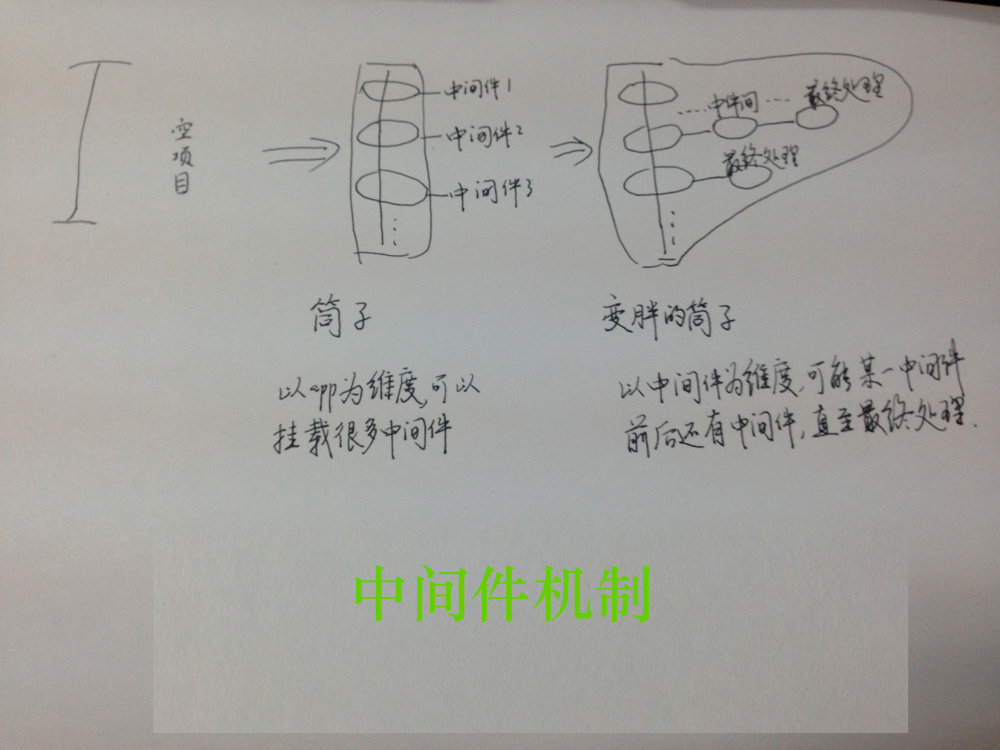 空项目
中间件1
中间件2
中间件3
中件间
最终处理
最终处理
筒子
以app为维度,可以
挂载很多中间件
变胖的筒子
以中间件为维度,可能某一中间件
前后还有中间件,直至最终处理.
中间件机制